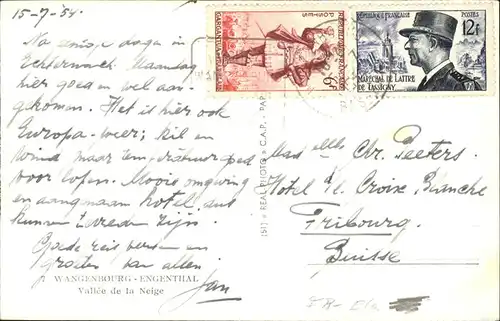 15-7-54.
Na enige dagen in
Echternach Maandag
hier goed en wel aan-
gekomen. Het is hier ook
Europa-weer; kil en
wind maar
voor lopen. Mooie omgeving
en aangenaam hotel, dus
kunnen tevreden zijn.
Goede reis verder en
groeten van allen
Jan
7 WANGENBOURG - ENGENTHAL
Vallée de la Neige
1511 » REAL PHOTO « C.A.P. - PAR
POSTES
RÉPUBLIQUE FRANÇAISE
GARGANTUA
6F
RÉPUBLIQUE FRANÇAISE
POSTES
12F
MARÉCHAL DE LATTRE
DE TASSIGNY
Chr. Peeters
Hotel de Croix Blanche
Fribourg.
Suisse